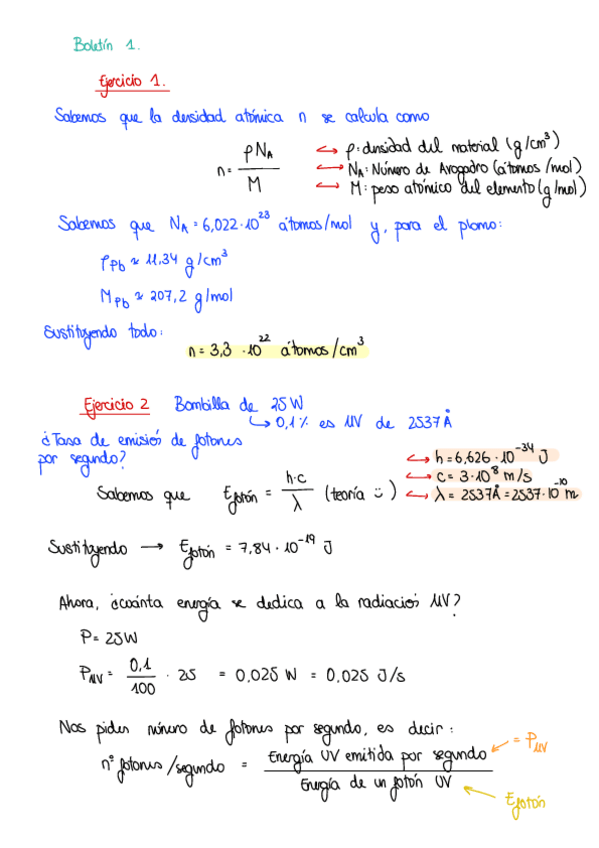 Boletín 1.
Ejercicio 1.
Sabemos que la densidad atómica n se calcula como
n = ρN_A / M
↔ ρ: densidad del material (g/cm³)
↔ N_A: Número de Avogadro (átomos/mol)
↔ M: peso atómico del elemento (g/mol)
Sabemos que N_A = 6,022·10²³ átomos/mol y, para el plomo:
ρ_Pb ≈ 11,34 g/cm³
M_Pb ≈ 207,2 g/mol
Sustituyendo todo:
n = 3,3 · 10²² átomos/cm³
Ejercicio 2 Bombilla de 25W
↳ 0,1% es UV de 2537Å
¿Tasa de emisión de fotones
por segundo?
↔ h = 6,626·10⁻³⁴ J
↔ c = 3·10⁸ m/s
↔ λ = 2537Å = 2537·10⁻¹⁰ m
Sabemos que E_fotón = h·c / λ (teoría ü)
Sustituyendo → E_fotón = 7,84·10⁻¹⁹ J
Ahora, ¿cuánta energía se dedica a la radiación UV?
P = 25W
P_UV = 0,1/100 · 25 = 0,025 W = 0,025 J/s
Nos piden número de fotones por segundo, es decir:
nº fotones/segundo = Energía UV emitida por segundo / Energía de un fotón UV
= P_UV
E_fotón